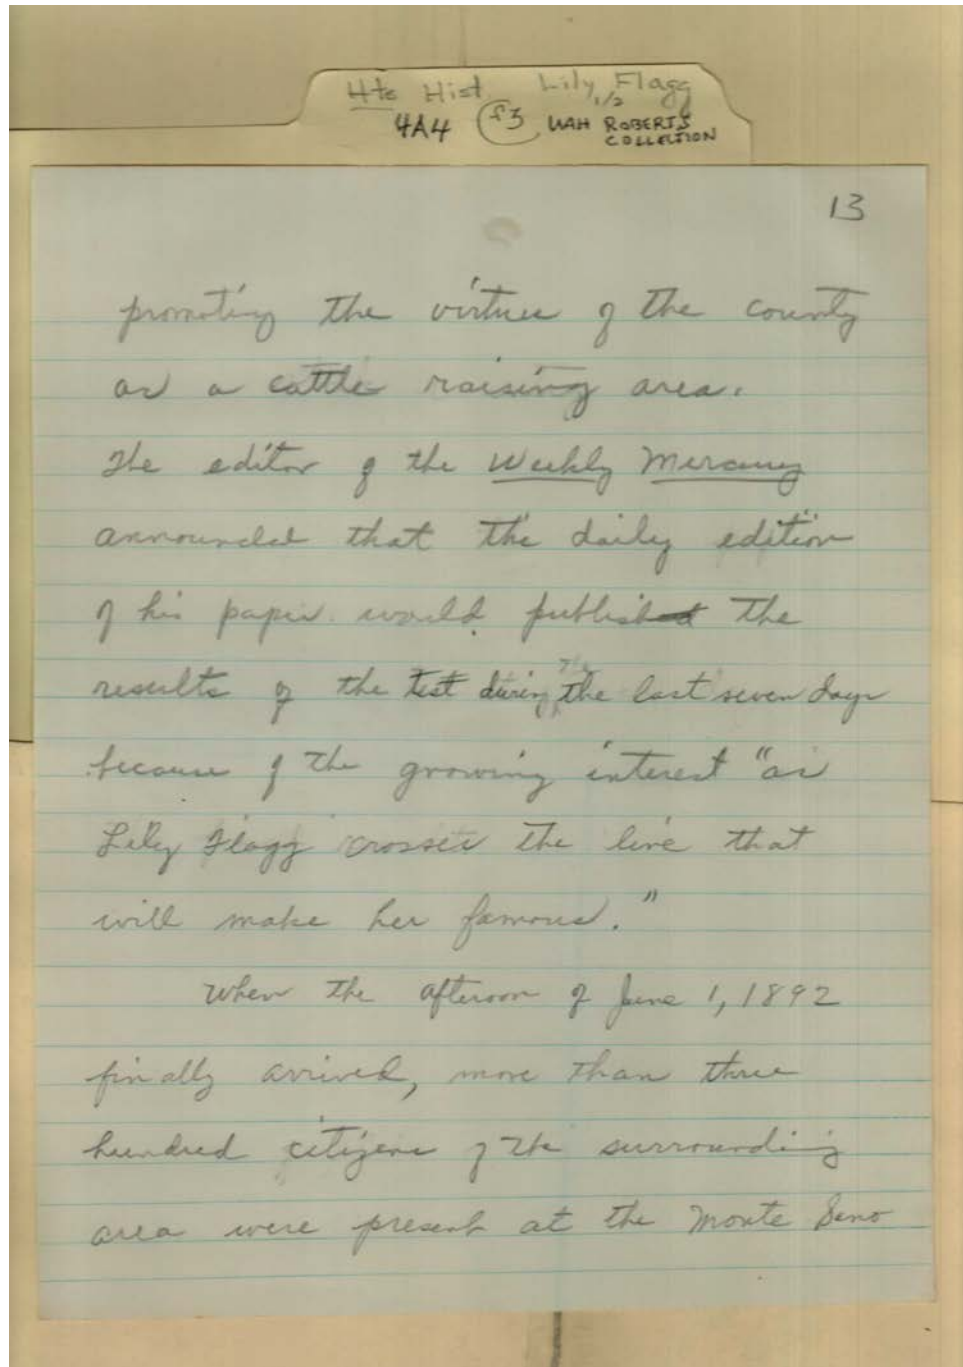 Hts Hist Lily Flagg
1/2
4A4 f3 UAH ROBERTS
COLLECTION
13
promoting the virtues of the county
as a cattle raising area.
The editor of the Weekly Mercury
announded that the daily edition
of his paper would publish the
results of the test during the last seven days
because of the growing interest "as
Lily Flagg crosses the line that
will make her famous."
When the afternoon of June 1, 1892
finally arrived, more than three
hundred citizens of the surrounding
area were present at the Monte Sano